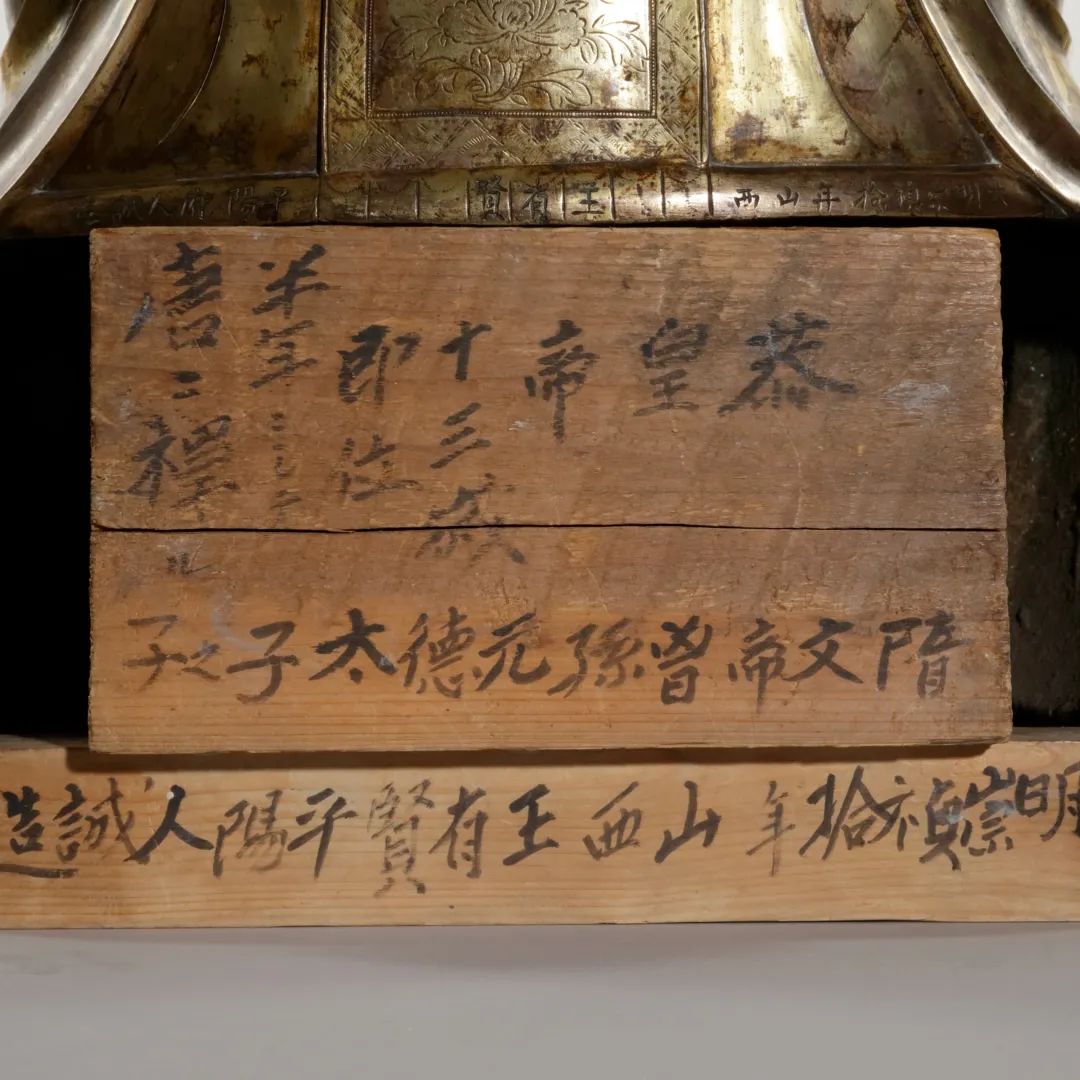 明崇禎拾年山西王有賢平陽府人誠
恭皇帝
十三歲
即位
半年ニシテ
唐ニ禪ル
隋文帝曾孫元德太子之子
明崇禎拾年山西王有賢平陽人誠造